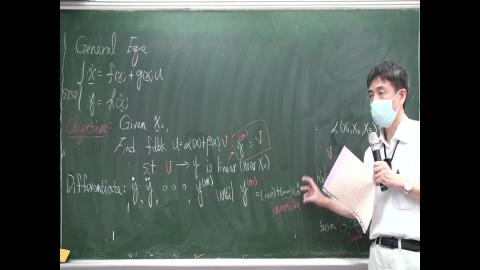 General Eqs
SISO { ẋ = f(x) + g(x)u
y = h(x)
Objective: Given x₀
Find fdbk u=α(x)+β(x)v
s.t v → y is linear (near x₀)
y⁽ᵐ⁾ = v
Differentiate: ẏ, ÿ, ..., y⁽ᵐ⁾ until y⁽ᵐ⁾ =
invertible
= α(x₁,x₂,x₃)